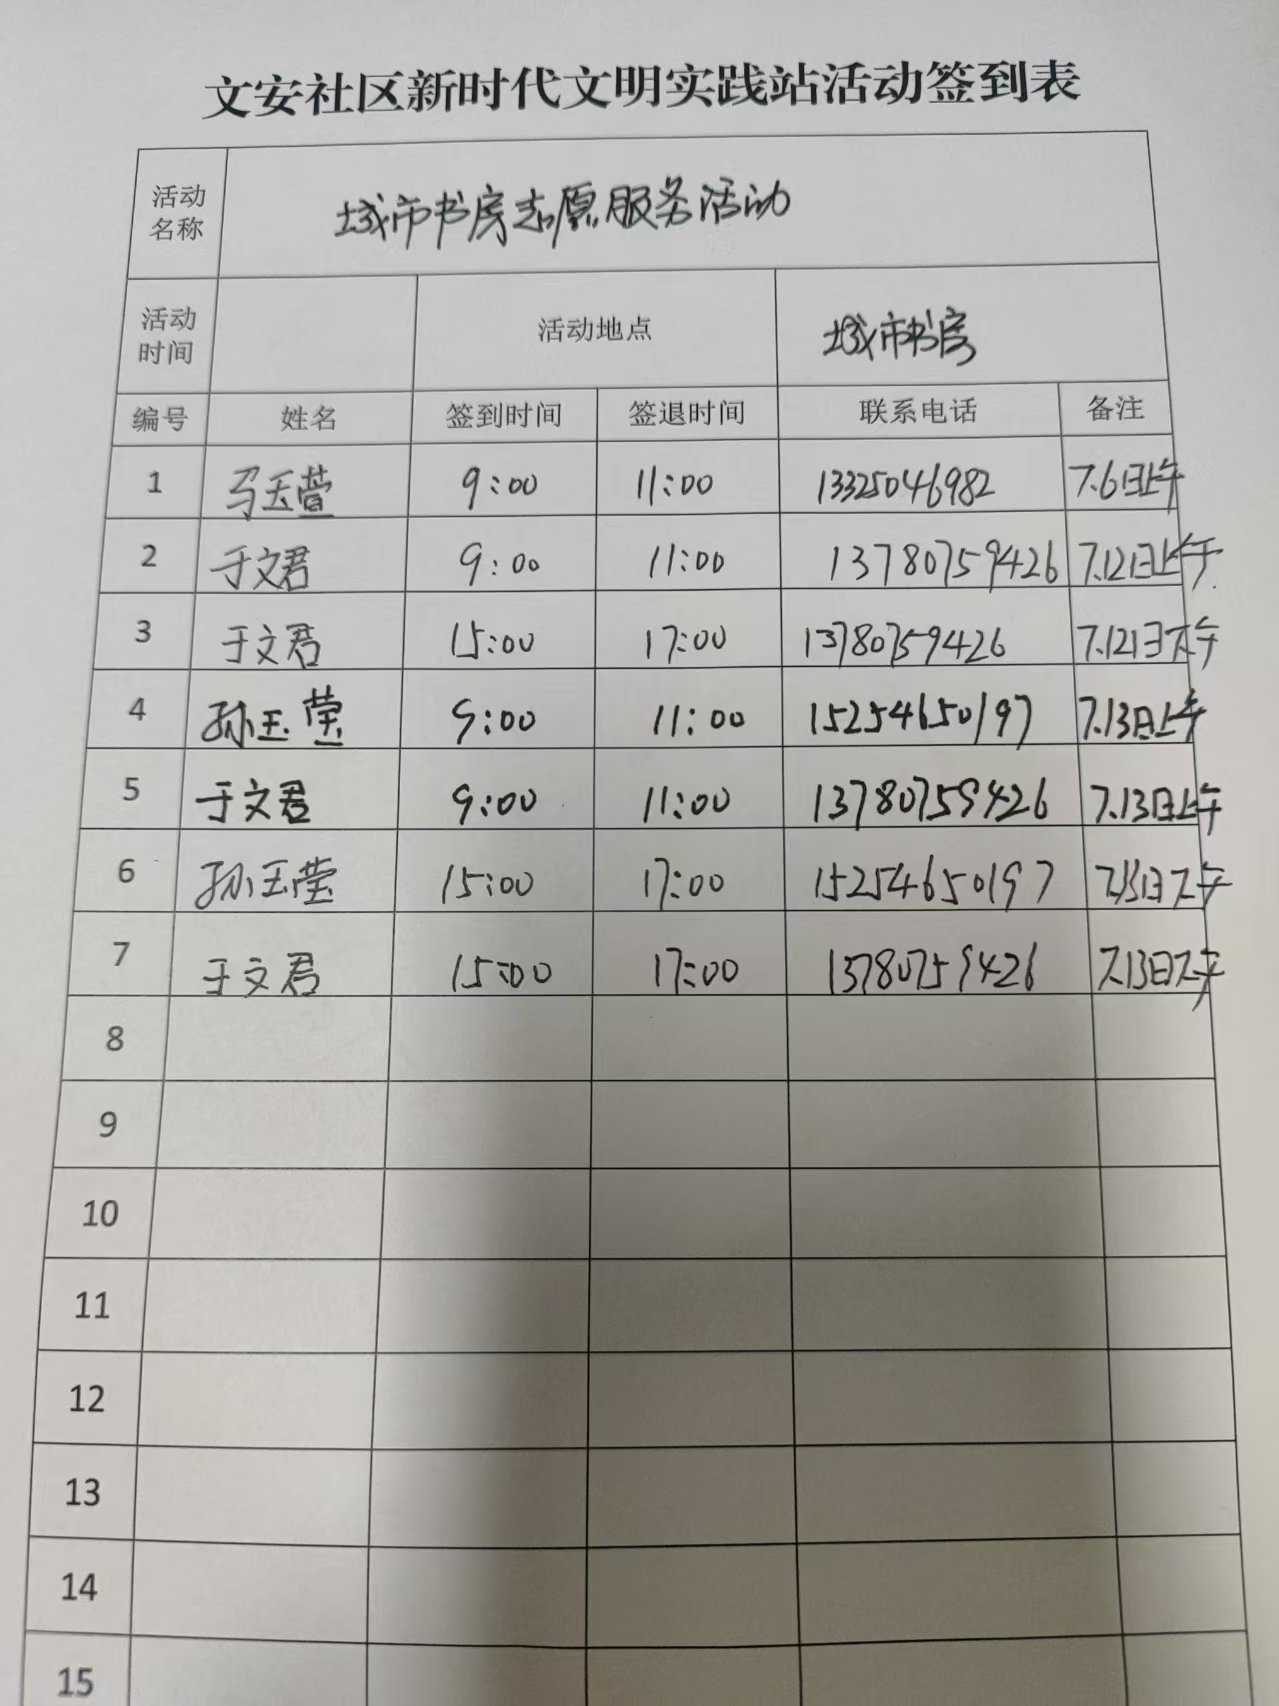 文安社区新时代文明实践站活动签到表
活动名称 城市书房志愿服务活动
活动时间 活动地点 城市书房
编号 姓名 签到时间 签退时间 联系电话 备注
1 马玉萱 9:00 11:00 13325046982 7.6日上午
2 于文君 9:00 11:00 13780759426 7.12日上午
3 于文君 15:00 17:00 13780759426 7.12日下午
4 孙玉莹 9:00 11:00 15254650197 7.13日上午
5 于文君 9:00 11:00 13780759426 7.13日上午
6 孙玉莹 15:00 17:00 15254650197 7.13日下午
7 于文君 15:00 17:00 13780759426 7.13日下午
8
9
10
11
12
13
14
15